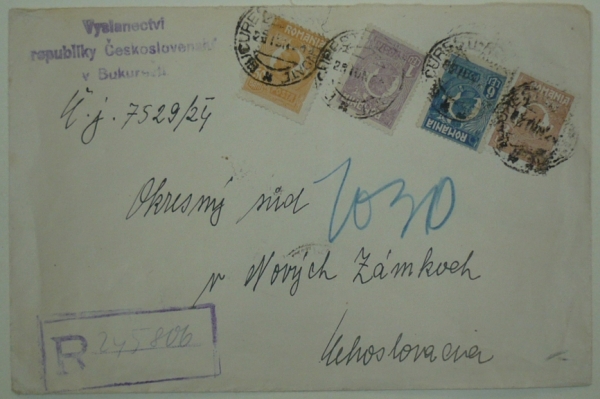 Vyslanectví
republiky Československé
v Bukurešti
Č. j. 7529/24
ROMANIA
ROMANIA
BUCUREST
Okresný súd
1030
v Nových Zámkoch
R 245806
Čehoslovacia